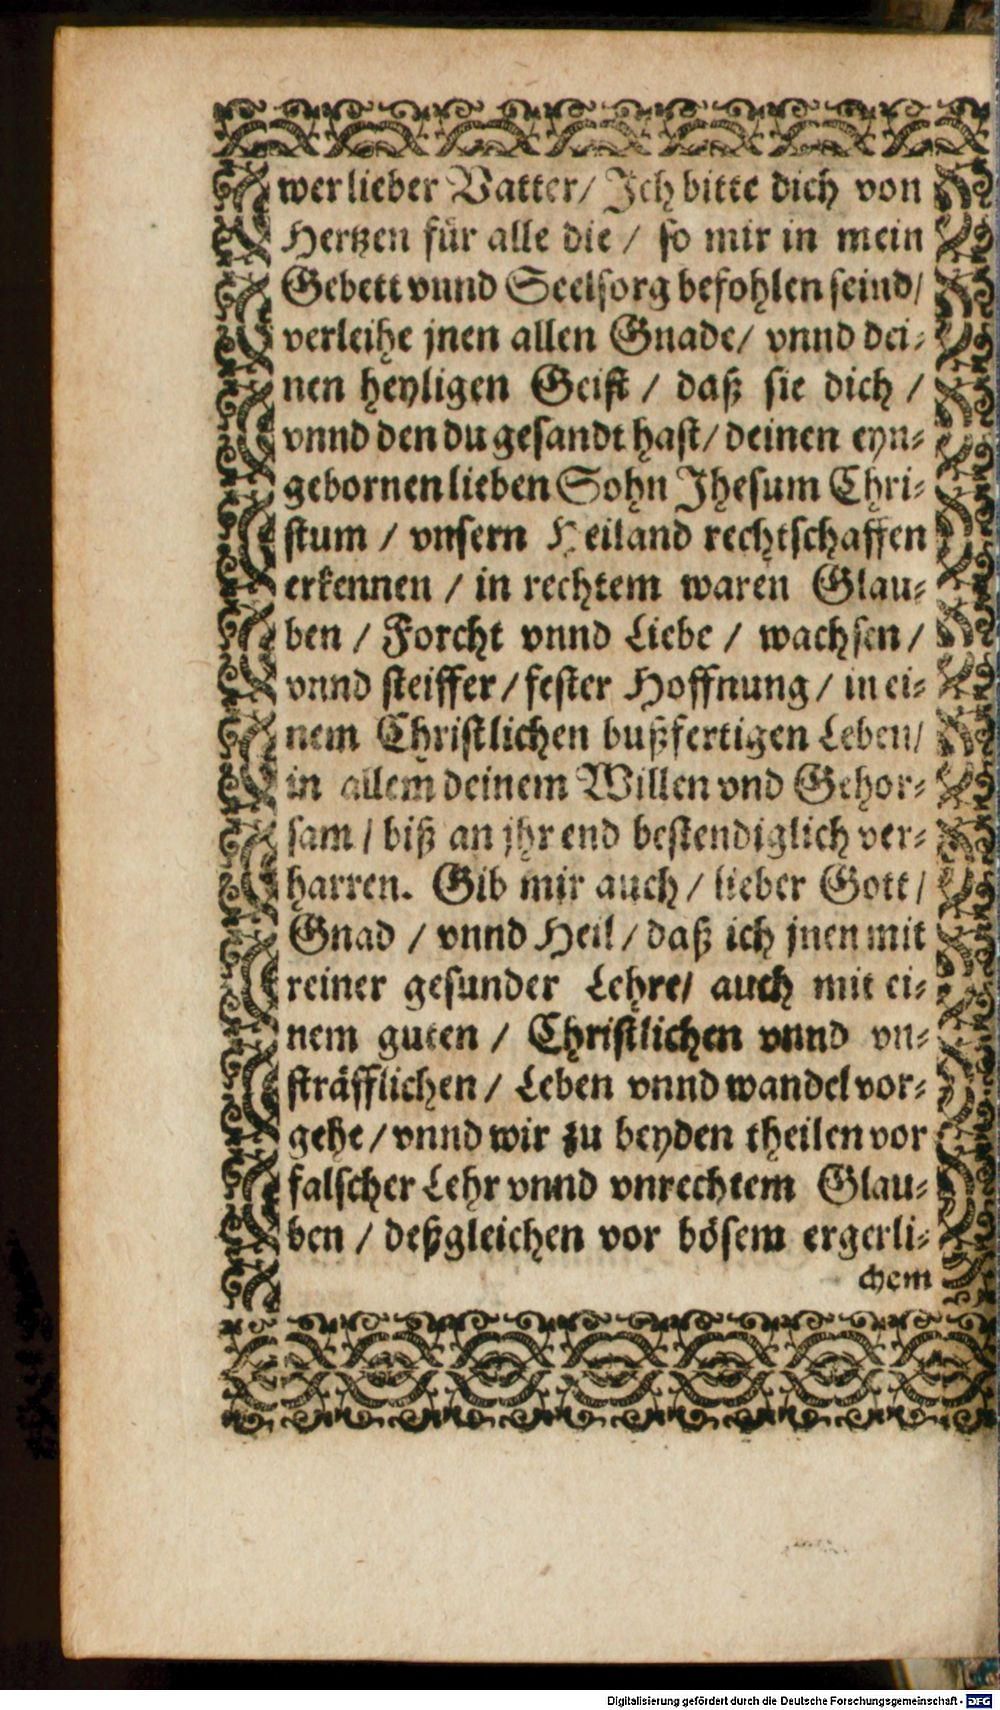 wer lieber Vatter/ Jch bitte dich von
Hertzen für alle die / so mir in mein
Gebett vnnd Seelsorg befohlen seind/
verleihe jnen allen Gnade/ vnnd dei-
nen heyligen Geist / daß sie dich /
vnnd den du gesandt hast/ deinen eyn-
gebornen lieben Sohn Jhesum Chri-
stum / vnsern Heiland rechtschaffen
erkennen / in rechtem waren Glau-
ben / Forcht vnnd Liebe / wachsen /
vnnd steiffer / fester Hoffnung / in ei-
nem Christlichen bußfertigen Leben/
in allem deinem Willen vnd Gehor-
sam / biß an jhr end bestendiglich ver-
harren. Gib mir auch / lieber Gott /
Gnad / vnnd Heil / daß ich jnen mit
reiner gesunder Lehre/ auch mit ei-
nem guten / Christlichen vnnd vn-
sträfflichen / Leben vnnd wandel vor-
gehe / vnnd wir zu beyden theilen vor
falscher Lehr vnnd vnrechtem Glau-
ben / deßgleichen vor bösem ergerli-
chem
Digitalisierung gefördert durch die Deutsche Forschungsgemeinschaft - DFG